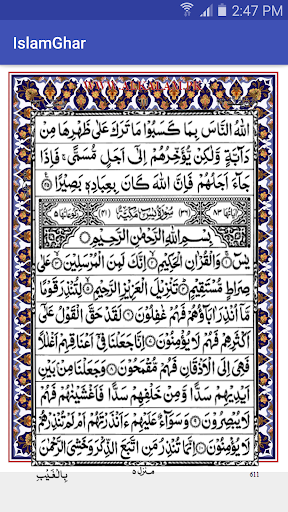 2:47 PM
IslamGhar
اللّٰهُ النَّاسَ بِمَا كَسَبُوْا مَا تَرَكَ عَلٰى ظَهْرِهَا مِنْ
دَآبَّةٍ وَّلٰكِنْ يُّؤَخِّرُهُمْ اِلٰٓى اَجَلٍ مُّسَمًّى ۚ فَاِذَا
جَآءَ اَجَلُهُمْ فَاِنَّ اللّٰهَ كَانَ بِعِبَادِهٖ بَصِيْرًا
سُوْرَةُ يٰسٓ مَكِّيَّةٌ
بِسْمِ اللّٰهِ الرَّحْمٰنِ الرَّحِيْمِ
يٰسٓ ۚ وَالْقُرْاٰنِ الْحَكِيْمِ ۙ اِنَّكَ لَمِنَ الْمُرْسَلِيْنَ ۙ عَلٰى
صِرَاطٍ مُّسْتَقِيْمٍ ؕ تَنْزِيْلَ الْعَزِيْزِ الرَّحِيْمِ ۙ لِتُنْذِرَ قَوْمًا
مَّآ اُنْذِرَ اٰبَآؤُهُمْ فَهُمْ غٰفِلُوْنَ لَقَدْ حَقَّ الْقَوْلُ عَلٰٓى
اَكْثَرِهِمْ فَهُمْ لَا يُؤْمِنُوْنَ اِنَّا جَعَلْنَا فِيْٓ اَعْنَاقِهِمْ اَغْلٰلًا
فَهِيَ اِلَى الْاَذْقَانِ فَهُمْ مُّقْمَحُوْنَ وَجَعَلْنَا مِنْۢ بَيْنِ
اَيْدِيْهِمْ سَدًّا وَّمِنْ خَلْفِهِمْ سَدًّا فَاَغْشَيْنٰهُمْ فَهُمْ
لَا يُبْصِرُوْنَ وَسَوَآءٌ عَلَيْهِمْ ءَاَنْذَرْتَهُمْ اَمْ لَمْ تُنْذِرْهُمْ
لَا يُؤْمِنُوْنَ اِنَّمَا تُنْذِرُ مَنِ اتَّبَعَ الذِّكْرَ وَخَشِيَ الرَّحْمٰنَ
بِالْغَيْبِ
منزل ۵
611